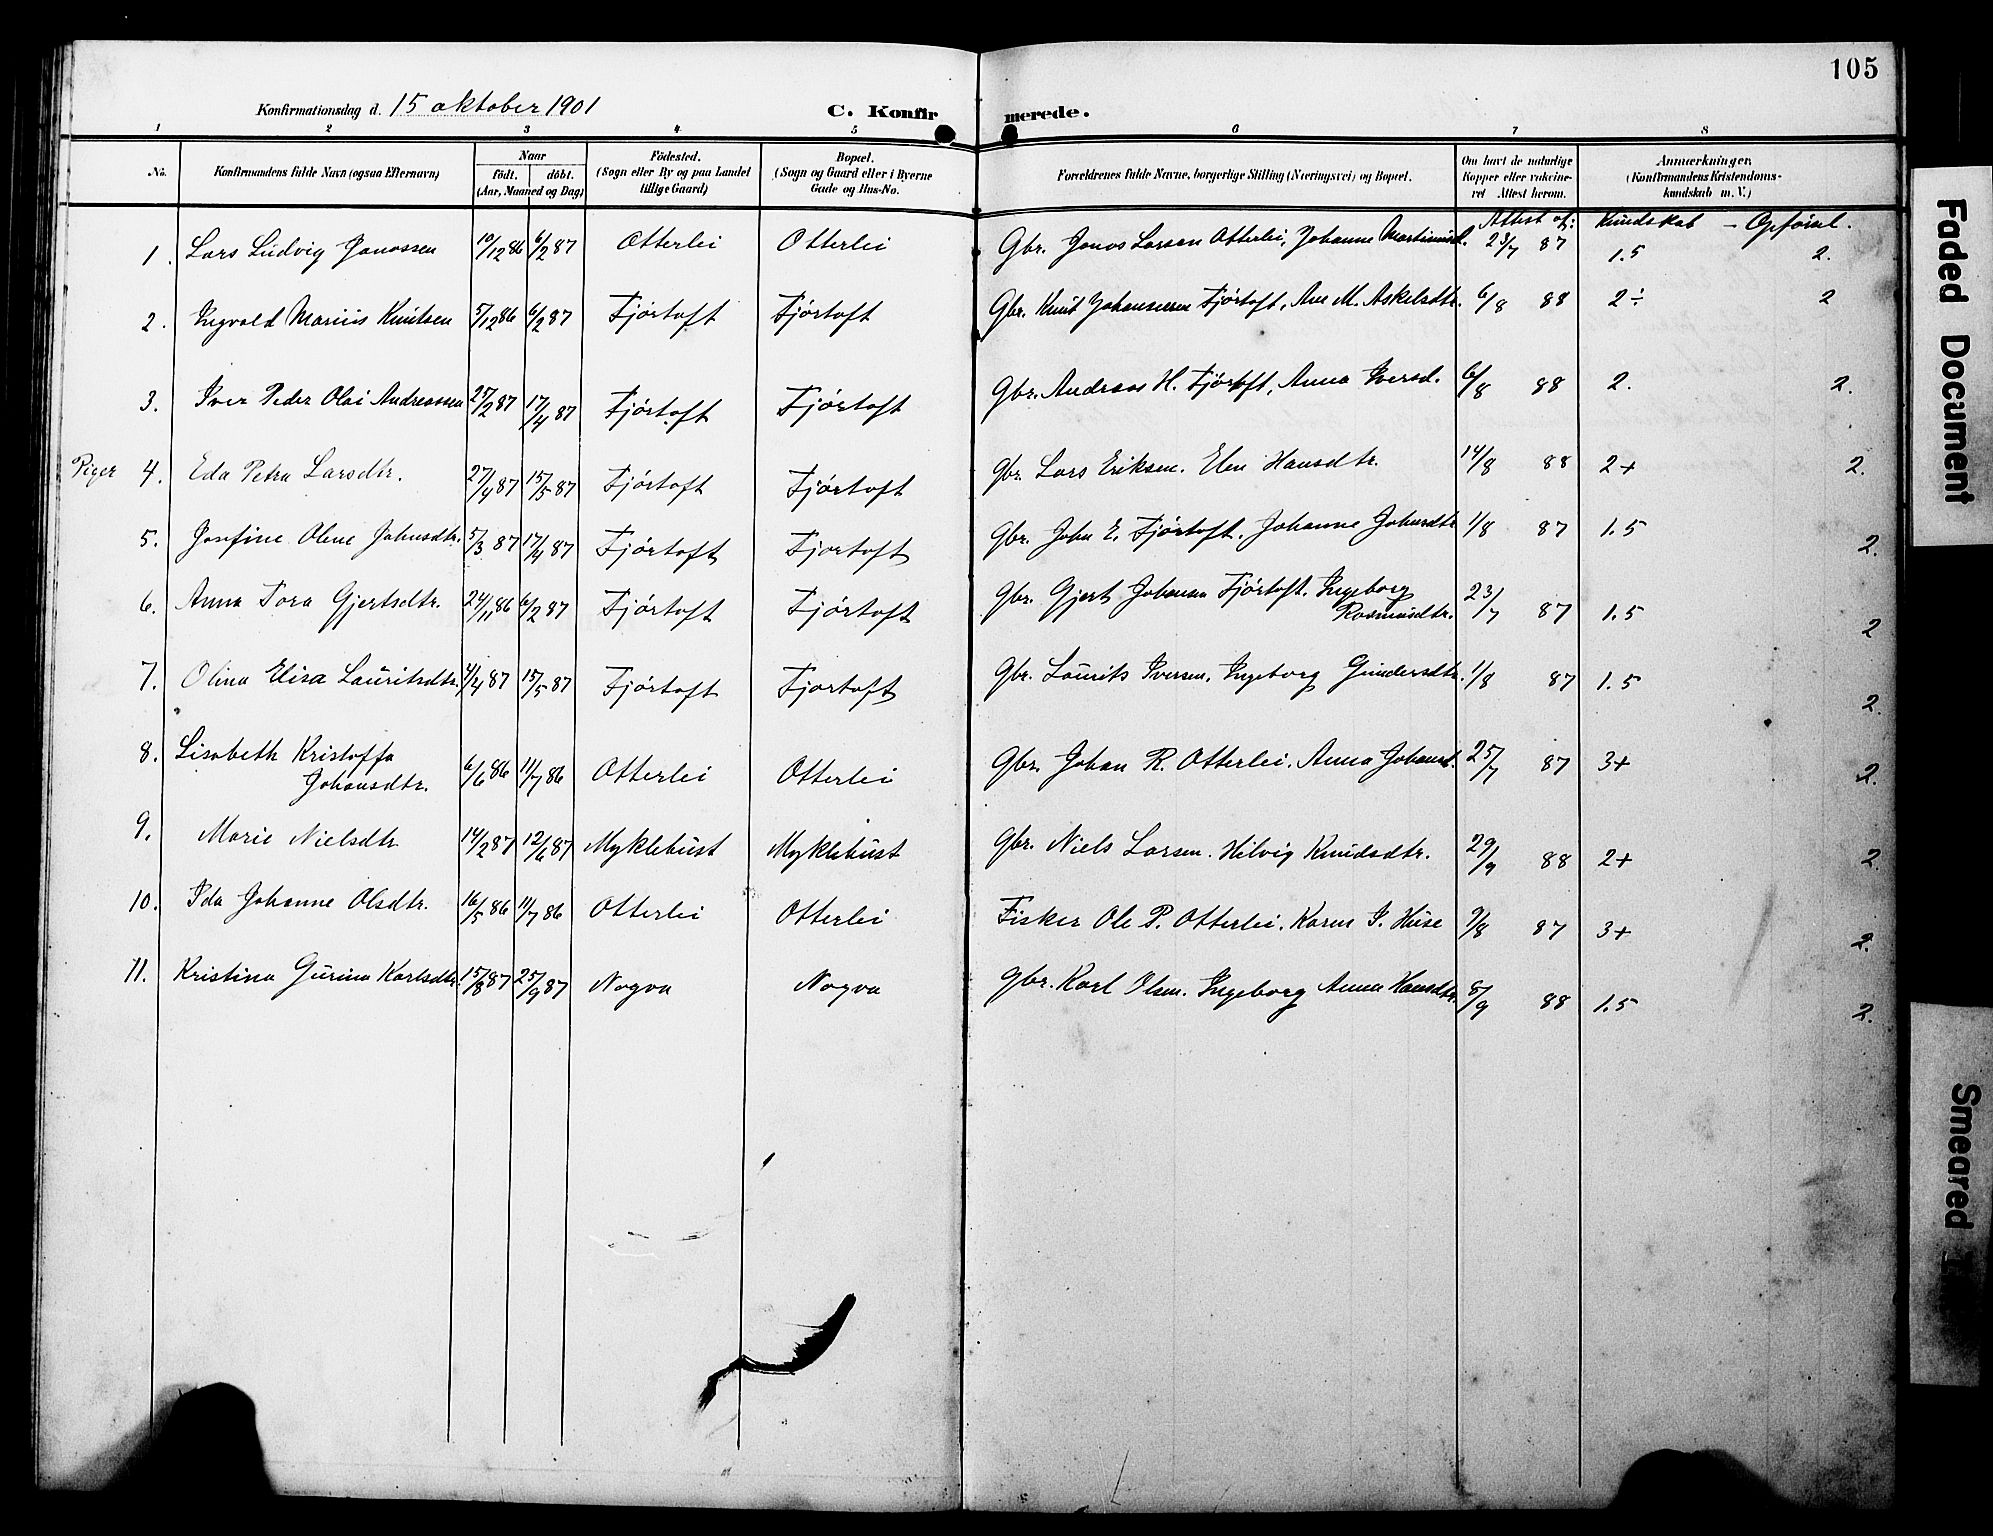 105
Konfirmationsdag d. 15 oktober 1901 C. Konfirmerede.
1 2 3 4 5 6 7 8
No. Konfirmandens fulde Navn (ogsaa Efternavn) Naar födt. döbt. (Aar, Maaned og Dag) Födested. (Sogn eller By og paa Landet tillige Gaard) Bopæl. (Sogn og Gaard eller i Byerne Gade og Hus-No. Forældrenes fulde Navne, borgerlige Stilling (Næringsvei) og Bopæl. Om havt de naturlige Kopper eller vakcineret Attest herom. Anmærkninger. (Konfirmandens Kristendomskundskab m. V.)
Attest af: Kundskab – Opførsel.
1. Lars Ludvig Janossen 10/12 86 6/2 87 Otterlei Otterlei Gbr. Jonos Larsen Otterlei, Johanne Martinusd. 23/7 87 1.5 2.
2. Ingvald Marius Knutsen 5/12 86 6/2 87 Fjörtoft Fjörtoft Gbr. Knut Johannesen Fjörtoft, Ane M. Askelsdtr. 6/8 88 2÷ 2
3. Iver Peder Olai Andreassen 27/2 87 17/4 87 Fjörtoft Fjörtoft Gbr. Andreas H. Fjörtoft, Anna Iversd. 6/8 88 2. 2.
Piger 4. Eda Petra Larsdtr. 27/4 87 15/5 87 Fjörtoft Fjörtoft Gbr. Lars Eriksen. Elen Hansdtr. 14/8 88 2+ 2.
5. Josefine Olene Johnsdtr. 5/3 87 17/4 87 Fjörtoft Fjortoft Gbr. John E. Fjörtoft. Johanne Johnsdtr 1/8 87 1.5 2.
6. Anna Tora Gjertsdtr. 24/11 86 6/2 87 Fjörtoft Fjörtoft Gbr. Gjert Johansen Fjörtoft. Ingeborg Rasmusdtr. 23/7 87 1.5 2
7. Olina Elisa Lauritsdtr. 4/4 87 15/5 87 Fjörtoft Fjortoft Gbr. Laurits Iversen, Ingeborg Gundersdtr. 1/8 87 1.5 2.
8. Lisabeth Kristoffa Johansdtr. 6/6 86 11/7 86 Otterlei Otterlei Gbr. Johan R. Otterlei. Anna Johansd. 25/7 87 3+ 2.
9. Marie Nielsdtr. 14/2 87 12/6 87 Myklebust Myklebust Gbr. Niels Larsen. Hilvig Knudsdtr. 29/9 88 2+ 2.
10. Ida Johanne Olsdtr. 16/5 86 11/7 86 Otterlei Otterlei Fisker Ole P. Otterlei. Karen I. Huse 9/8 87 3+ 2.
11. Kristina Gurina Karlsdtr. 15/8 87 25/9 87 Nogva Nogva Gbr. Karl Olsen. Ingeborg Anna Hansdtr. 8/9 88 1.5 2.
Faded Document
Smeared